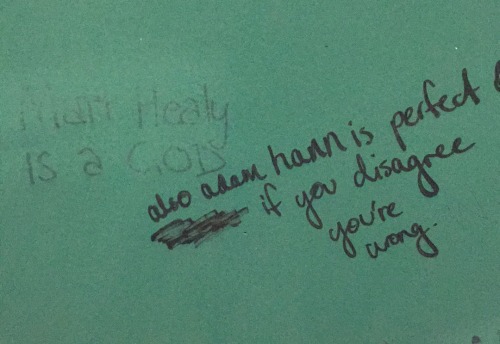 Matt Healy
IS a GOD
also adam hann is perfect &
if you disagree
you're
wrong.